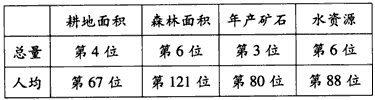 耕地面积 森林面积 年产矿石 水资源
总量 第4位 第6位 第3位 第6位
人均 第67位 第121位 第80位 第88位